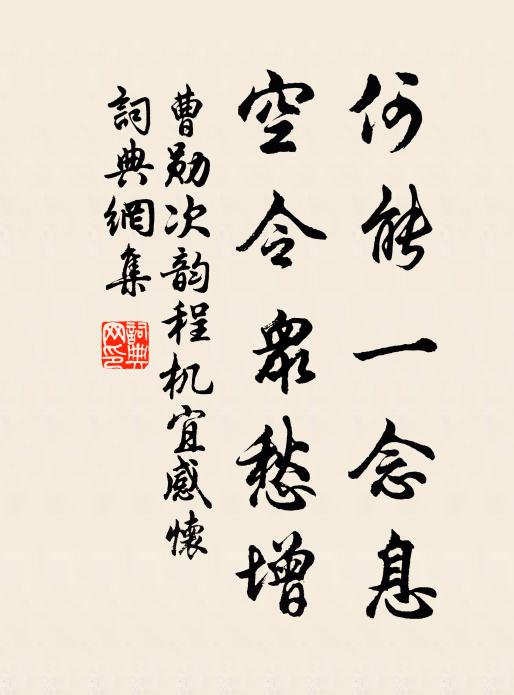 何能一念息
空令眾愁增
曹勛次韵程机宜感懷
詞典網集
詞典網印